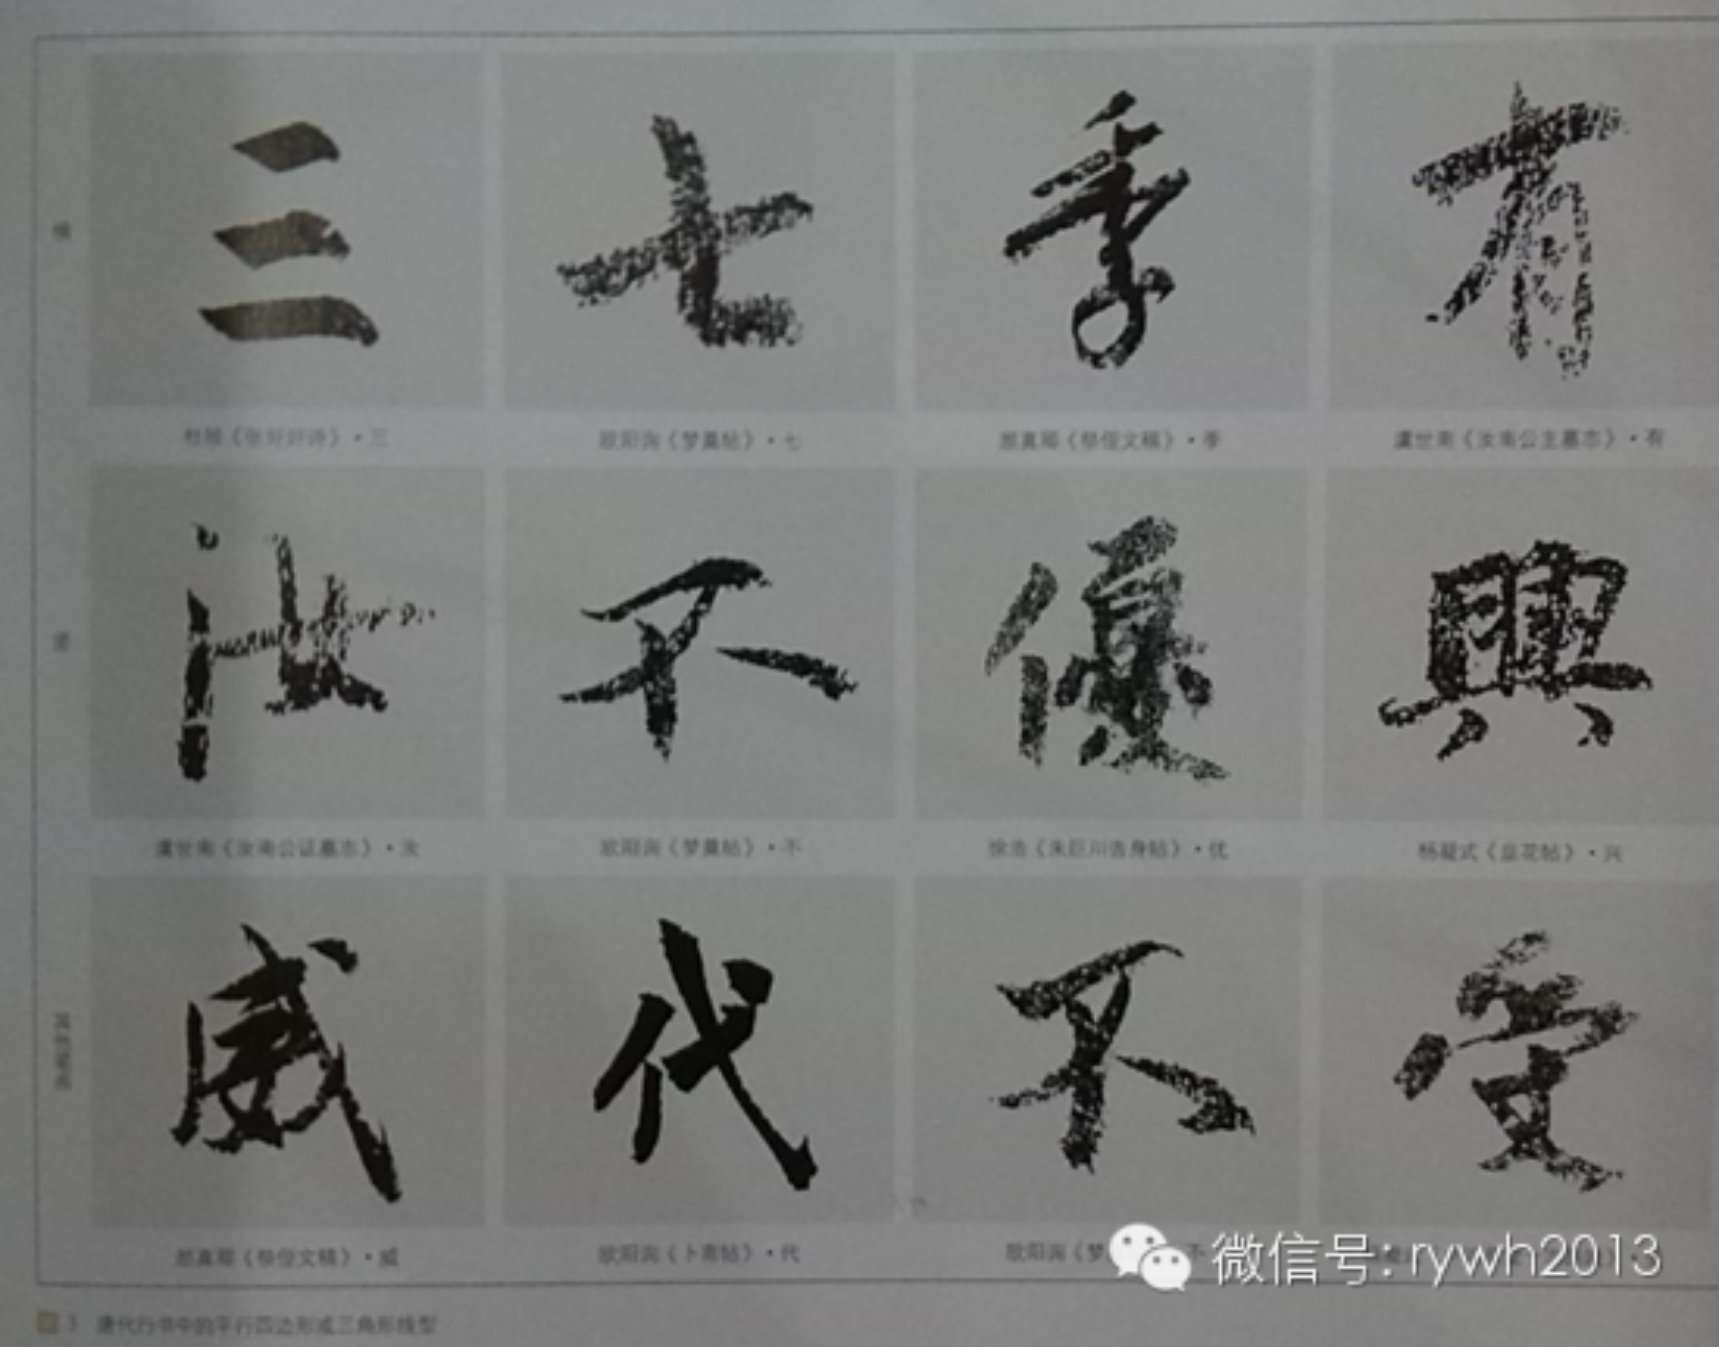 三 七 季 有
杜牧《张好好诗》·三 欧阳询《梦奠帖》·七 颜真卿《祭侄文稿》·季 虞世南《汝南公主墓志》·有
汝 不 優 興
虞世南《汝南公证墓志》·汝 欧阳询《梦奠帖》·不 徐浩《朱巨川告身帖》·优 杨凝式《韭花帖》·兴
威 代 不 受
颜真卿《祭侄文稿》·威 欧阳询《卜商帖》·代 欧阳询《梦 不
微信号: rywh2013
3 唐代行书中的平行四边形或三角形线型